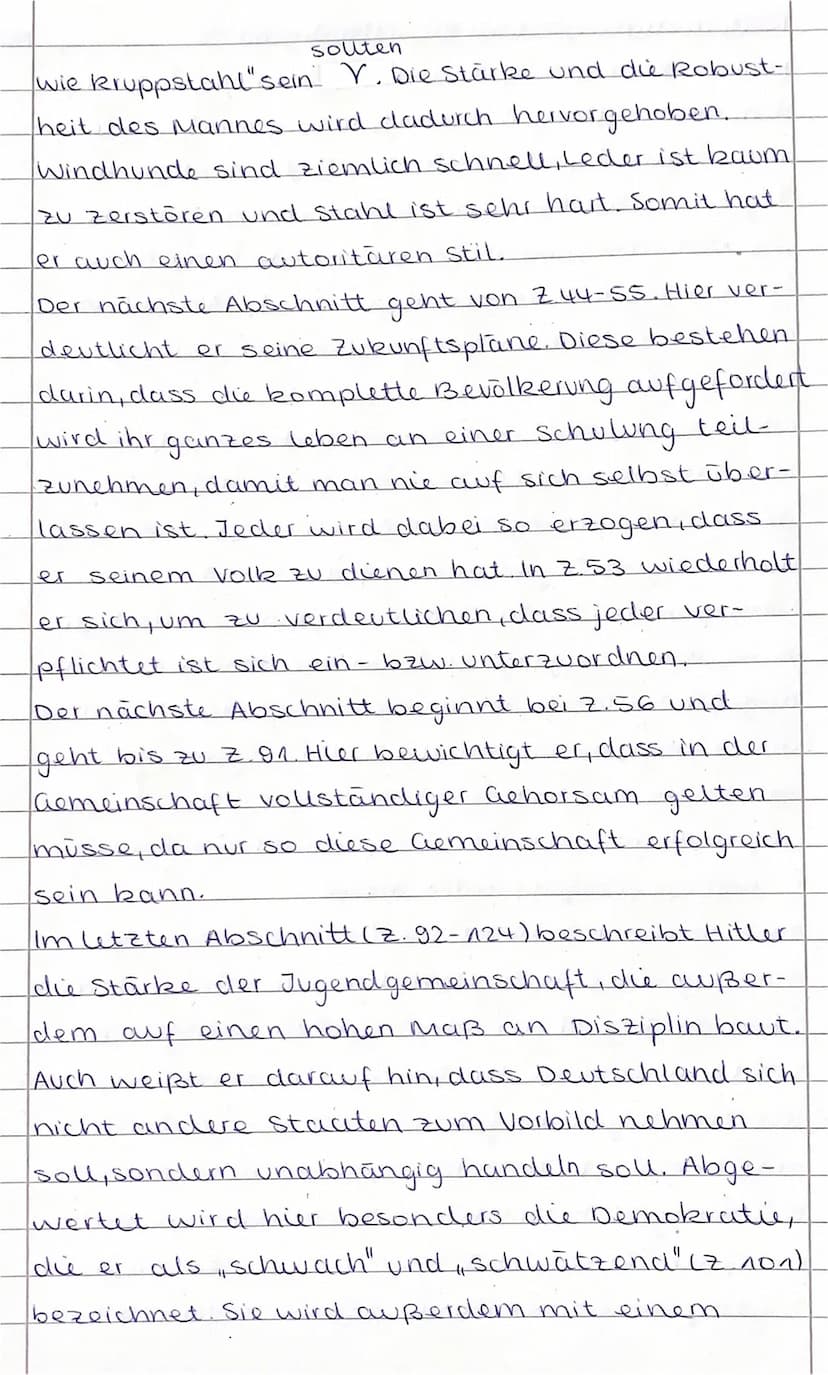 sollten
wie Kruppstahl" sein ꓬ. Die Stärke und die Robust-
heit des Mannes wird dadurch hervorgehoben.
Windhunde sind ziemlich schnell, Leder ist kaum
zu zerstören und Stahl ist sehr hart. Somit hat
er auch einen autoritären Stil.
Der nächste Abschnitt geht von Z 44-55. Hier ver-
deutlicht er seine Zukunftspläne. Diese bestehen
darin, dass die komplette Bevölkerung aufgefordert
wird ihr ganzes Leben an einer Schulung teil-
zunehmen, damit man nie auf sich selbst über-
lassen ist. Jeder wird dabei so erzogen, dass
er seinem Volk zu dienen hat. In Z.53 wiederholt
er sich, um zu verdeutlichen, dass jeder ver-
pflichtet ist sich ein- bzw. unterzuordnen.
Der nächste Abschnitt beginnt bei Z.56 und
geht bis zu Z.91. Hier bewichtigt er, dass in der
Gemeinschaft vollständiger Gehorsam gelten
müsse, da nur so diese Gemeinschaft erfolgreich
sein kann.
Im letzten Abschnitt (Z. 92-124) beschreibt Hitler
die Stärke der Jugendgemeinschaft, die außer-
dem auf einen hohen Maß an Disziplin baut.
Auch weißt er darauf hin, dass Deutschland sich
nicht andere Staaten zum Vorbild nehmen
soll, sondern unabhängig handeln soll. Abge-
wertet wird hier besonders die Demokratie,
die er als „schwach" und „schwätzend" (Z 101)
bezeichnet. Sie wird außerdem mit einem